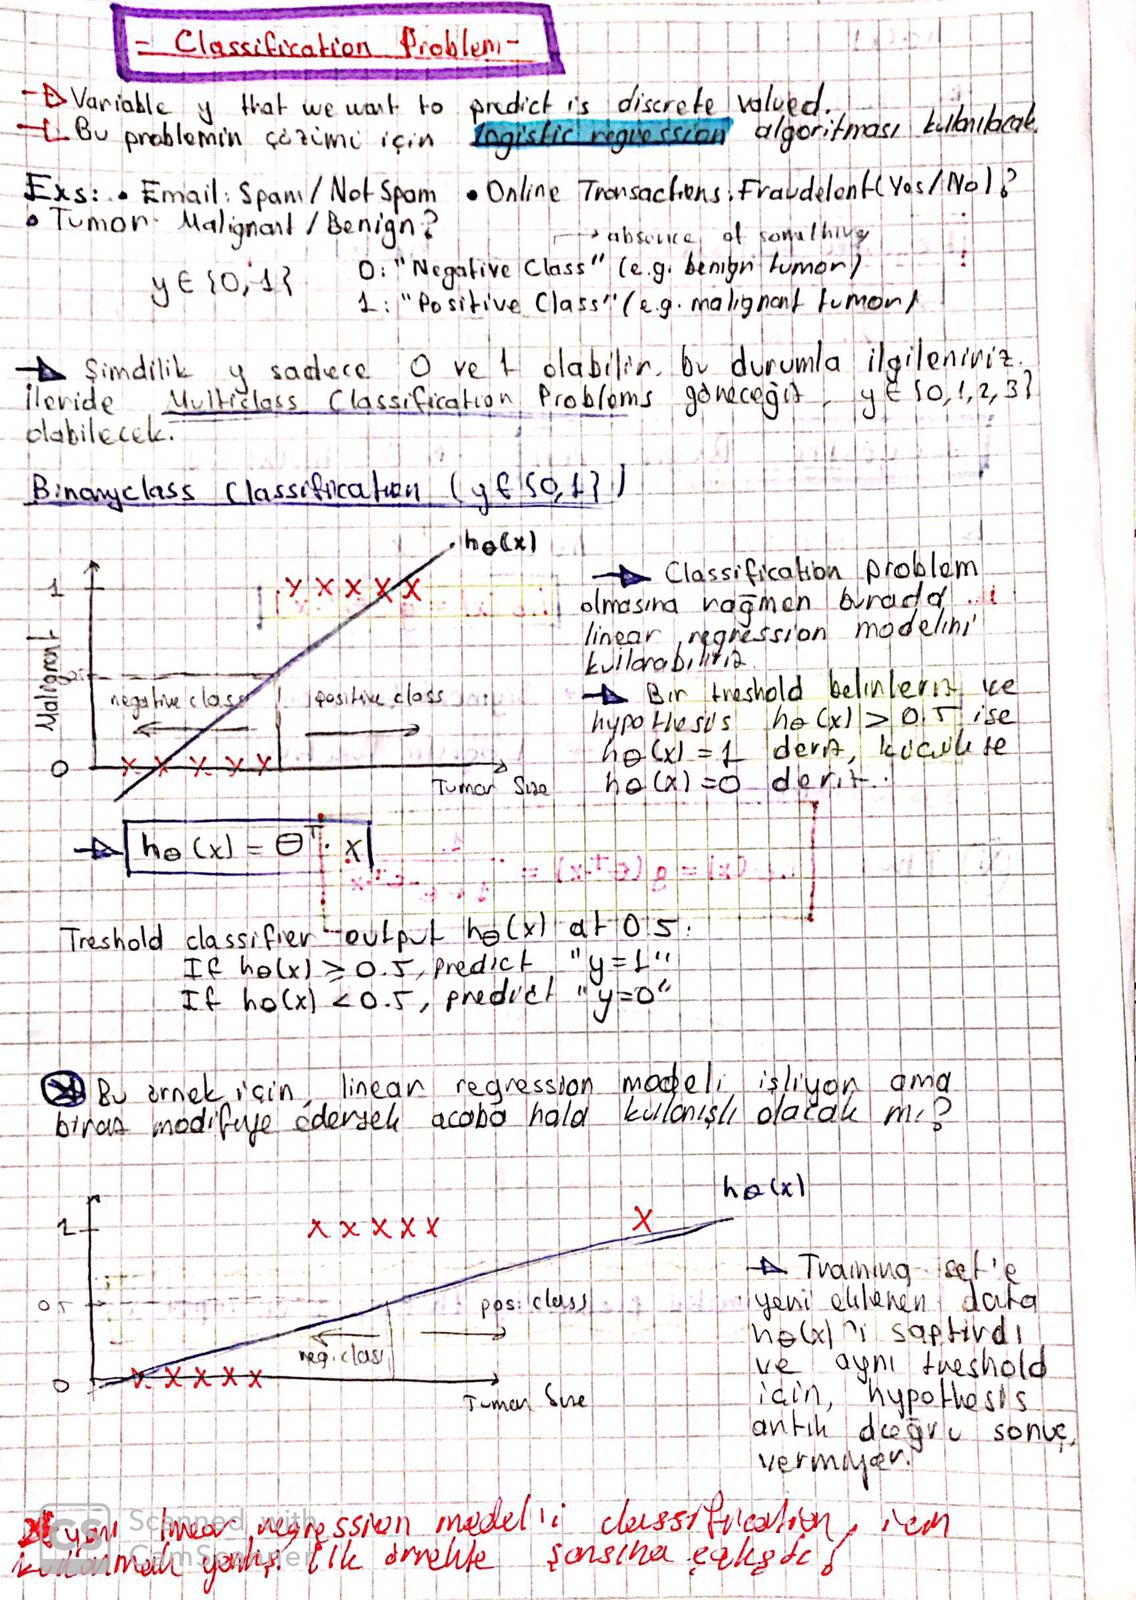 - Classification Problem -
Variable y that we want to predict is discrete valued.
Bu problemin çözümü için logistic regression algoritması kullanılacak.
Exs: • Email: Spam / Not Spam • Online Transactions: Fraudelent (Yes / No)?
• Tumor: Malignant / Benign?
→ absence of something
y ∈ {0, 1} 0: "Negative Class" (e.g. benign tumor)
1: "Positive Class" (e.g. malignant tumor)
→ Şimdilik y sadece 0 ve 1 olabilir, bu durumla ilgileniriz.
İleride Multiclass Classification Problems göreceğiz, y ∈ {0, 1, 2, 3}
olabilecek.
Binaryclass Classification (y ∈ {0, 1})
hθ(x)
1
Malignant
0.5
negative class
positive class
0
Tumor Size
→ Classification problem
olmasına rağmen burada
linear regression modelini
kullanabiliriz.
→ Bir treshold belirleriz ve
hypothesis hθ(x) > 0.5 ise
hθ(x) = 1 deriz, küçükse
hθ(x) = 0 deriz.
→ hθ(x) = θᵀ · x
Treshold classifier output hθ(x) at 0.5:
If hθ(x) ≥ 0.5, predict "y=1"
If hθ(x) < 0.5, predict "y=0"
Bu örnek için, linear regression modeli işliyor ama
biraz modifiye edersek acaba hala kullanışlı olacak mı?
hθ(x)
1
0.5
pos. class
neg. class
0
Tumor Size
→ Training set'e
yeni eklenen data
hθ(x)'i saptırdı
ve aynı treshold
için, hypothesis
artık doğru sonuç
vermiyor.
yani linear regression model'i classification için
kullanmak yanlış. İlk örnekte şansına çalıştı!
CS Scanned with
CamScanner